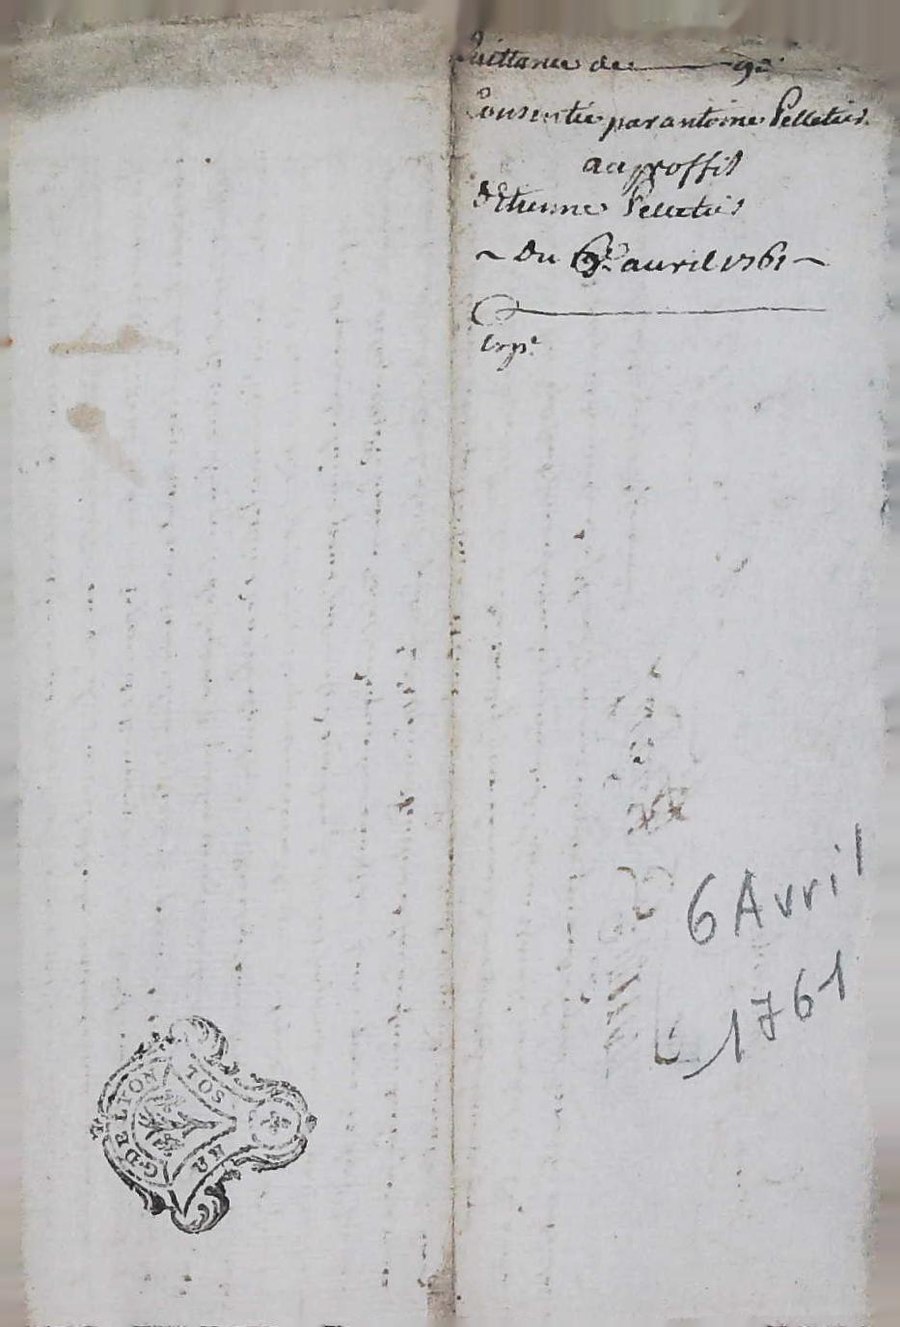 Quittance de 92#
Consentie par antoine Pelletier
au proffit
d'Etienne Pelletier
~ Du 6e. avril 1761 ~
Exp.e
6 Avril
1761
G. DE LYON
SOL